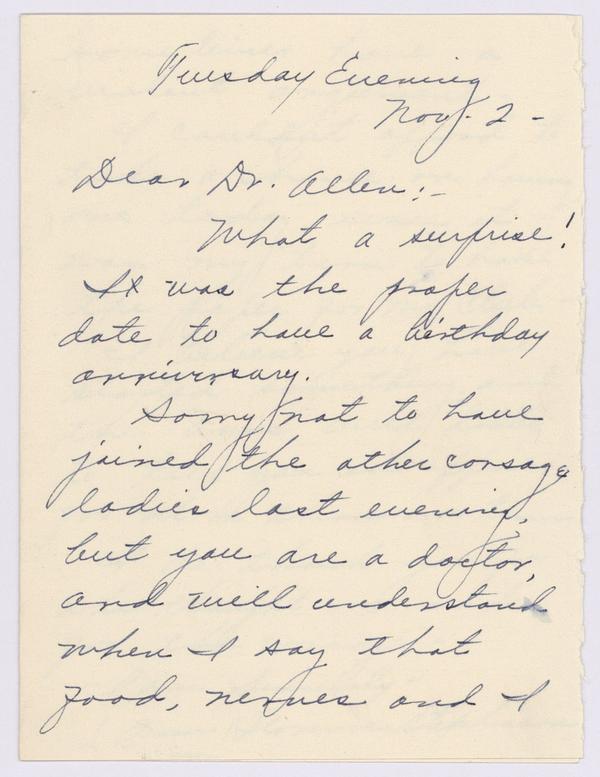 Tuesday Evening
Nov. 2 -
Dear Dr. Allen:-
What a surprise!
It was the proper
date to have a birthday
anniversary.
Sorry not to have
joined the other corsage
ladies last evening,
but you are a doctor,
and will understand
when I say that
food, nerves and I